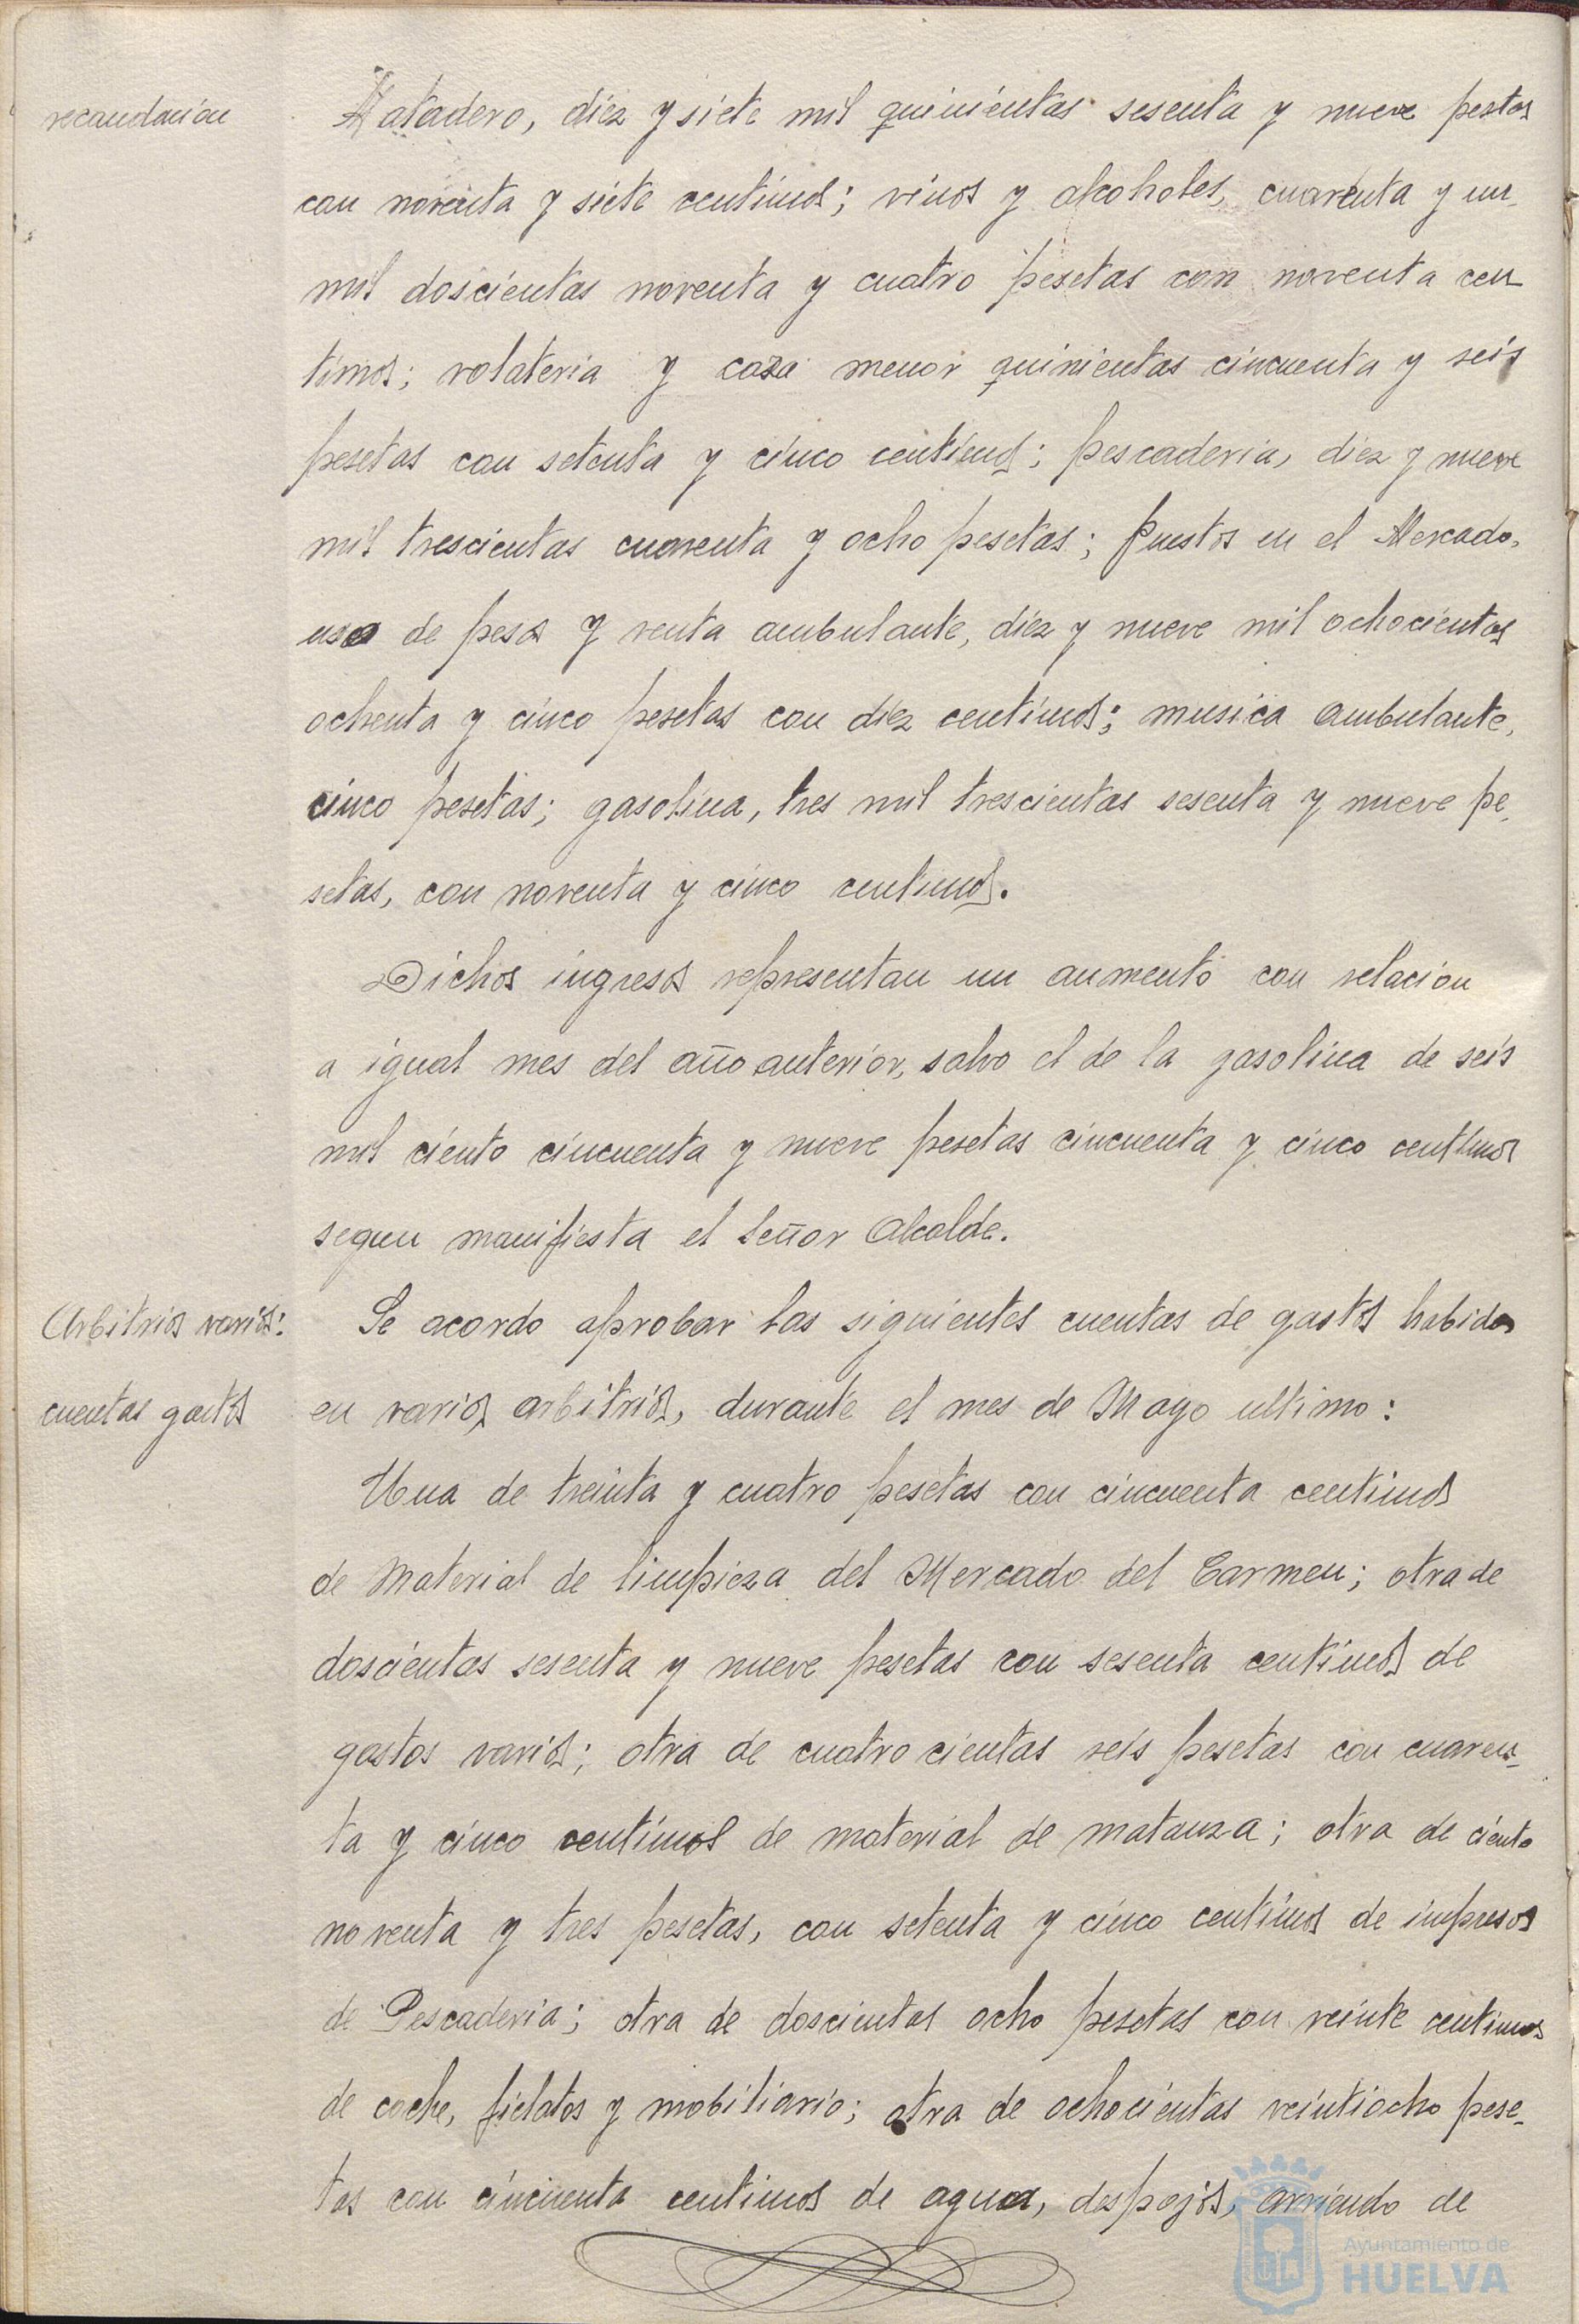 recaudacion
Matadero, diez y siete mil quinientas sesenta y nueve pesetas
con noventa y siete centimos; vinos y alcoholes, cuarenta y un
mil doscientas noventa y cuatro pesetas con noventa cen-
timos; volateria y caza menor quinientas cincuenta y seis
pesetas con setenta y cinco centimos; pescaderia, diez y nueve
mil trescientas cuarenta y ocho pesetas; Puestos en el Mercado,
uso de pesos y venta ambulante, diez y nueve mil ochocientos
ochenta y cinco pesetas con diez centimos; musica ambulante,
cinco pesetas; gasolina, tres mil trescientas sesenta y nueve pe-
setas, con noventa y cinco centimos.
Dichos ingresos representan un aumento con relacion
a igual mes del año anterior, salvo el de la gasolina de seis
mil ciento cincuenta y nueve pesetas cincuenta y cinco centimos
segun manifiesta el Señor Alcalde.
Arbitrios varios:
cuentas gastos
Se acordo aprobar las siguientes cuentas de gastos habidos
en varios arbitrios, durante el mes de Mayo ultimo:
Una de treinta y cuatro pesetas con cincuenta centimos
de Material de limpieza del Mercado del Carmen; otra de
doscientas sesenta y nueve pesetas con sesenta centimos de
gastos varios; otra de cuatrocientas seis pesetas con cuaren-
ta y cinco centimos de material de matanza; otra de ciento
noventa y tres pesetas, con setenta y cinco centimos de impresos
de Pescaderia; otra de doscientas ocho pesetas con veinte centimos
de coche, fielatos y mobiliario; otra de ochocientas veintiocho pese-
tas con cincuenta centimos de agua, despojos, arriendo de
Ayuntamiento de
HUELVA